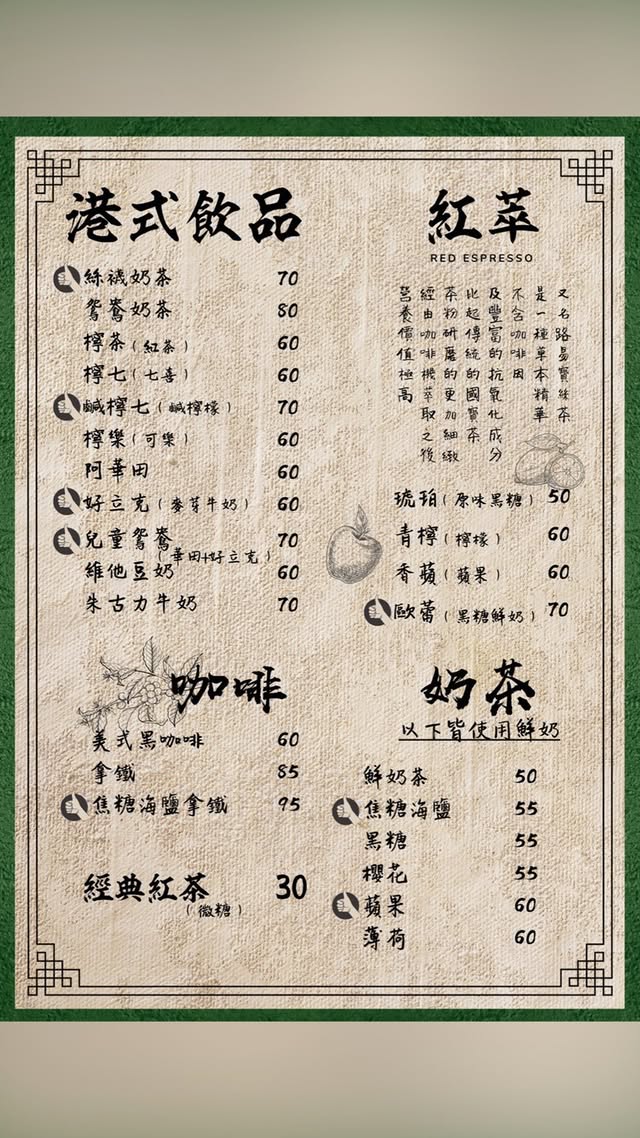 港式飲品
絲襪奶茶 70
鴛鴦奶茶 80
檸茶（紅茶） 60
檸七（七喜） 60
鹹檸七（鹹檸檬） 70
檸樂（可樂） 60
阿華田 60
好立克（麥芽牛奶） 60
兒童鴛鴦 70
（華田+好立克）
維他豆奶 60
朱古力牛奶 70
紅萃
RED ESPRESSO
又名路易寶絲茶
是一種草本精華
不含咖啡因
及豐富的抗氧化成分
比起傳統的國寶茶
茶粉研磨的更加細緻
經由咖啡機萃取之後
營養價值極高
琥珀（原味黑糖） 50
青檸（檸檬） 60
香蘋（蘋果） 60
歐蕾（黑糖鮮奶） 70
咖啡
美式黑咖啡 60
拿鐵 85
焦糖海鹽拿鐵 95
經典紅茶 30
（微糖）
奶茶
以下皆使用鮮奶
鮮奶茶 50
焦糖海鹽 55
黑糖 55
櫻花 55
蘋果 60
薄荷 60